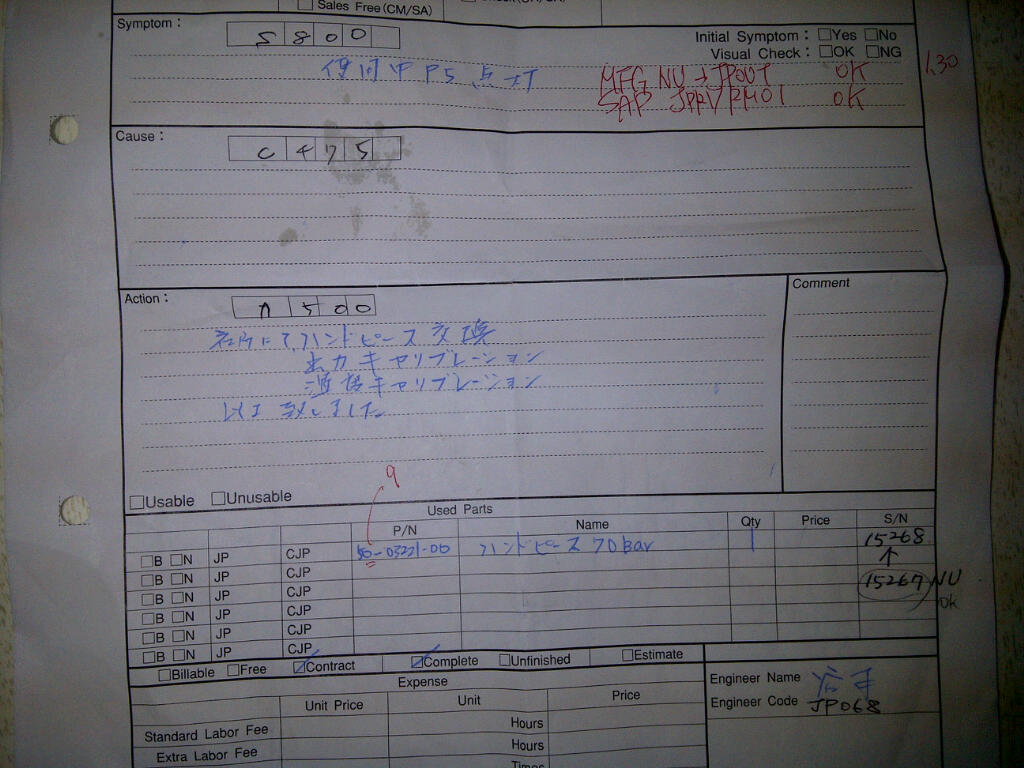 Sales Free (CM/SA)
Symptom :
5 8 0 0
Initial Symptom : □Yes □No
Visual Check : □OK □NG
使用中 P5 点灯
MFG NU → JPOUT OK
SAP JPRV/RM01 OK
1.30
Cause :
C 4 7 5
Action :
A 5 0 0
Comment
社内にて、ハンドピース交換
出力キャリブレーション
キャリブレーション
以上 致しました。
□Usable □Unusable
9
Used Parts
P/N Name Qty Price S/N
□B □N JP CJP 50-03221-00 ハンドピース 70bar 1 15268
↑
□B □N JP CJP 15267 NU
ok
□B □N JP CJP
□B □N JP CJP
□B □N JP CJP
□B □N JP CJP
□Billable □Free ☑Contract ☑Complete □Unfinished □Estimate
Expense
Unit Price Unit Price
Standard Labor Fee Hours
Extra Labor Fee Hours
Times
Engineer Name
Engineer Code JP068